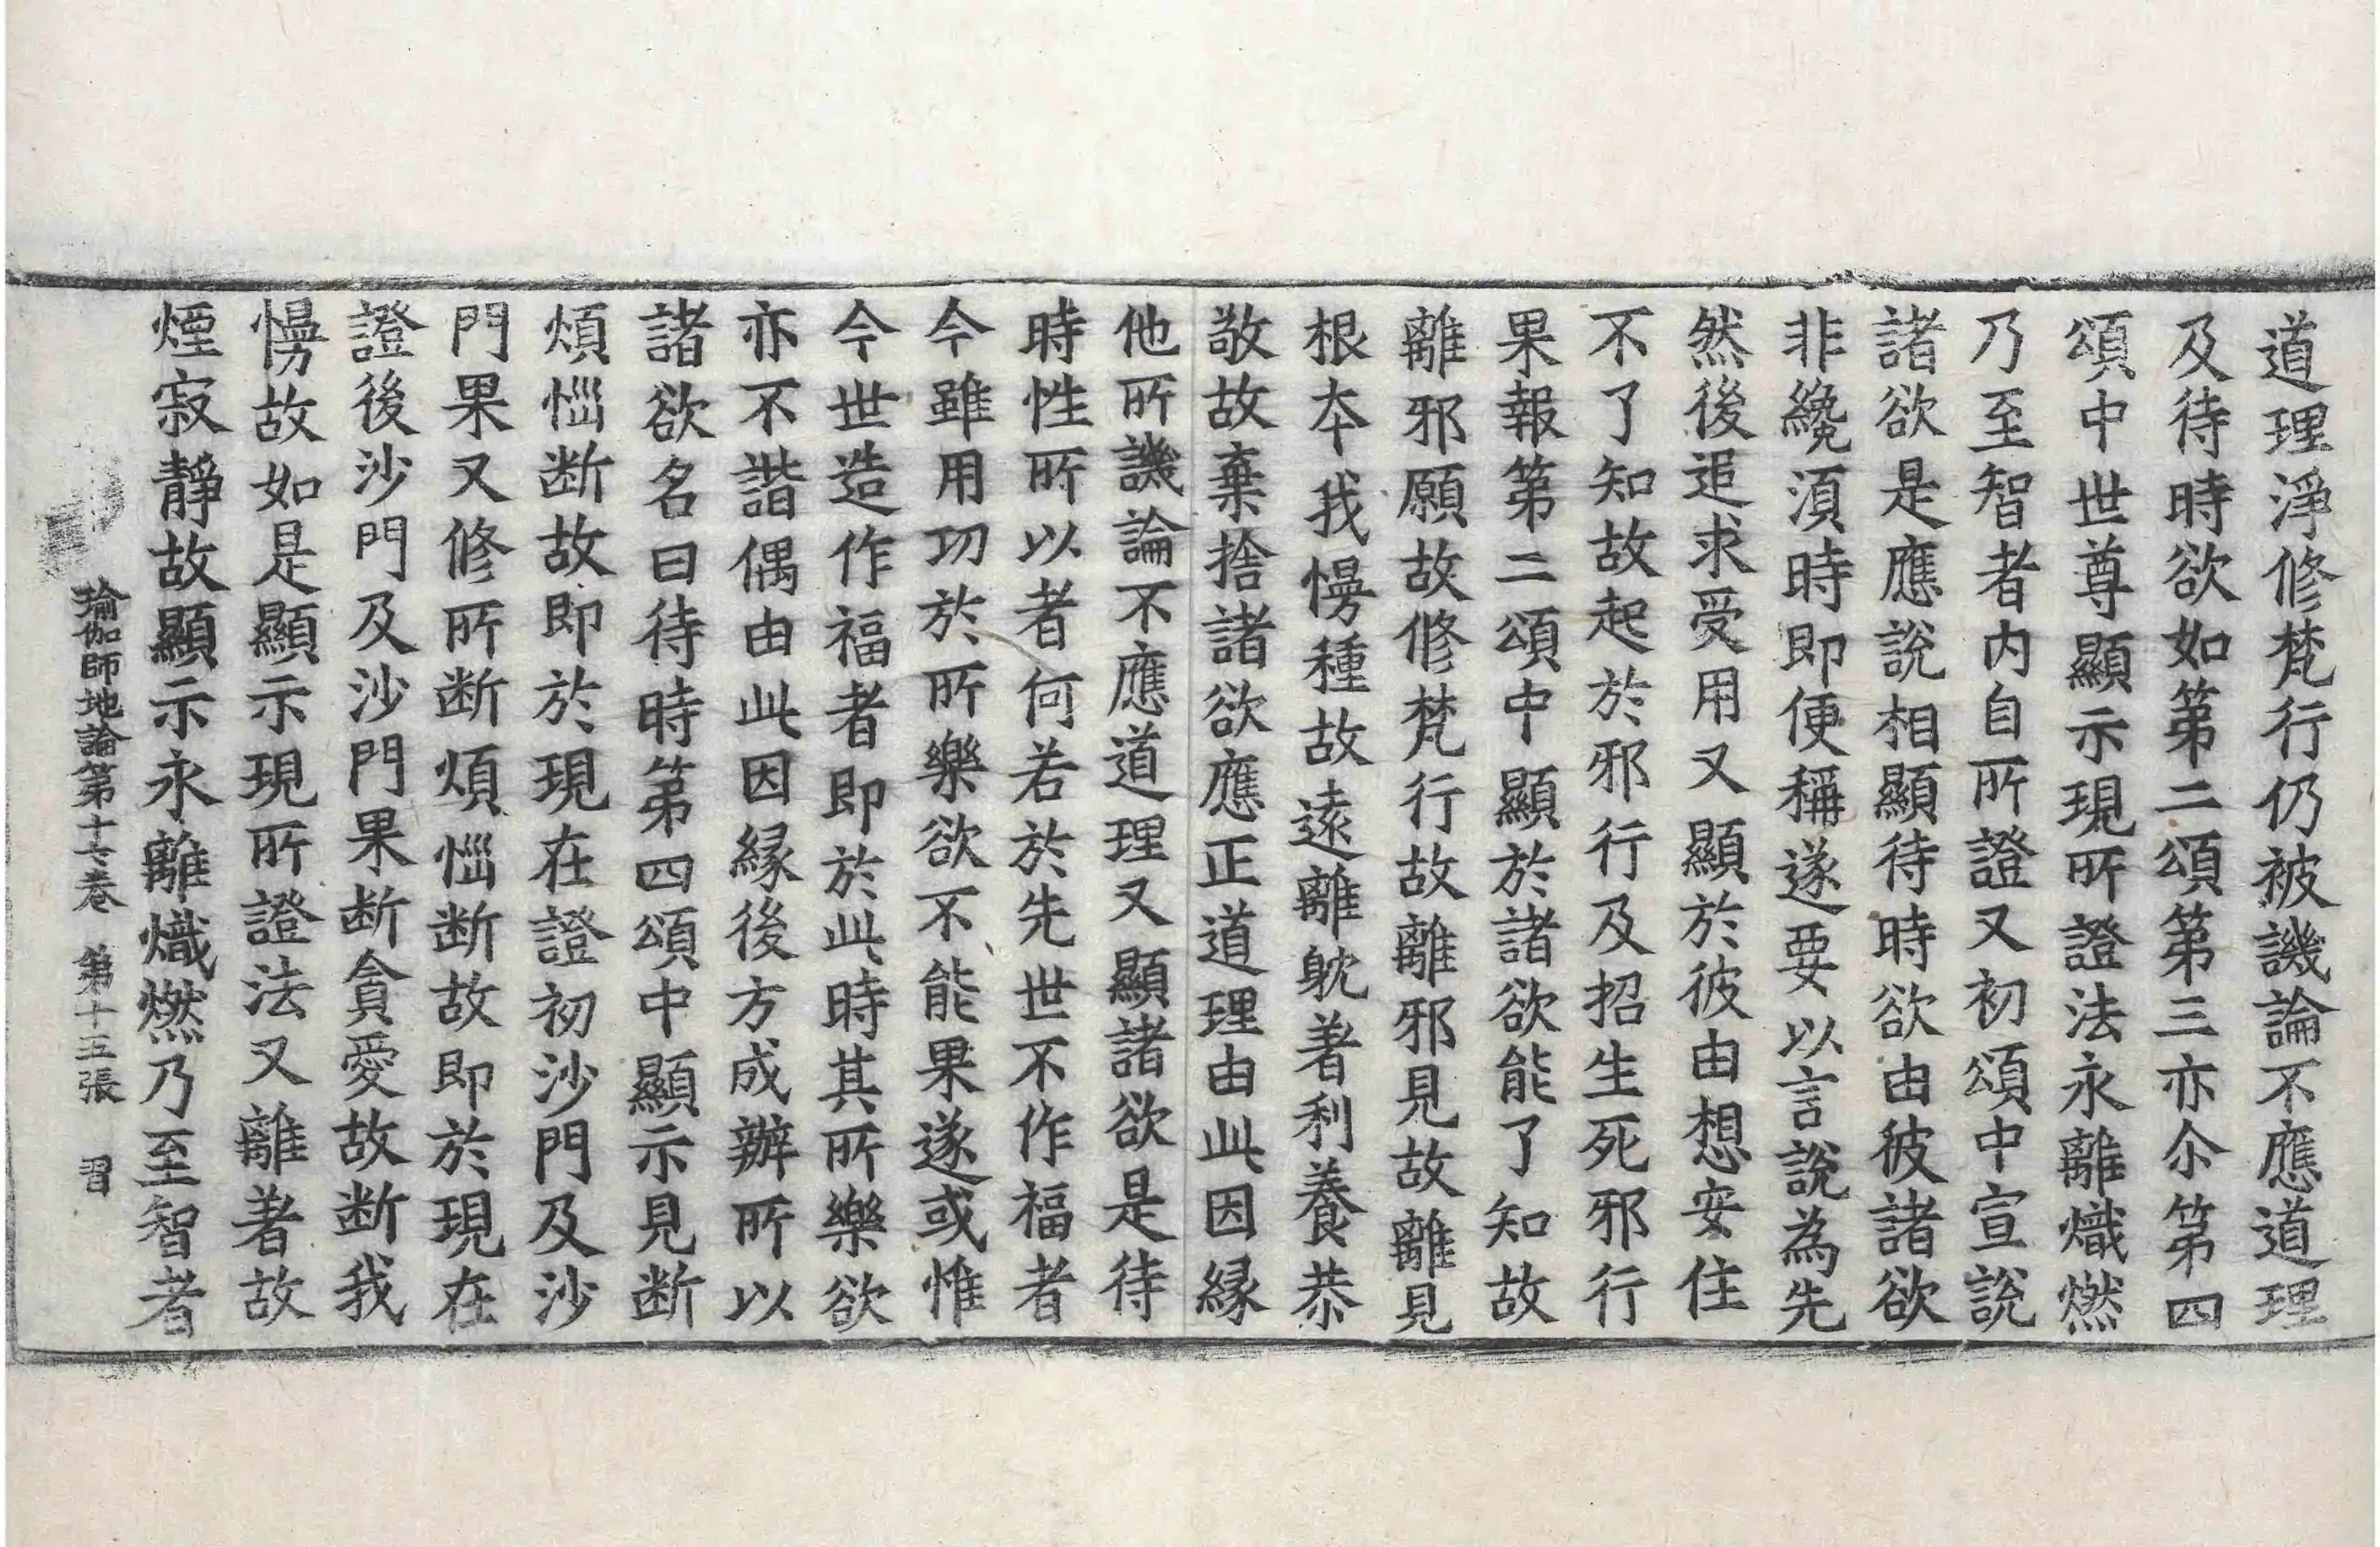 道理淨修梵行仍被譏論不應道理
及待時欲如第二頌第三亦尒第四
頌中世尊顯示現所證法永離熾燃
乃至智者內自所證又初頌中宣說
諸欲是應說相顯待時欲由彼諸欲
非纔湏時即便稱遂要以言說為先
然後追求受用又顯於彼由想安住
不了知故起於邪行及招生死邪行
果報第二頌中顯於諸欲能了知故
離邪願故修梵行故離邪見故離見
根夲我慢種故遠離躭著利養恭
敬故棄捨諸欲應正道理由此因緣
他所譏論不應道理又顯諸欲是待
時性所以者何若於先世不作福者
今雖用功於所樂欲不能果遂或惟
今世造作福者即於此時其所樂欲
亦不諧偶由此因緣後方成辦所以
諸欲名曰待時第四頌中顯示見断
煩惱断故即於現在證初沙門及沙
門果又修所断煩惱断故即於現在
證後沙門及沙門果断貪愛故断我
慢故如是顯示現所證法又離著故
煙寂靜故顯示永離熾燃乃至智者
瑜伽師地論第十七卷 第十五張 習